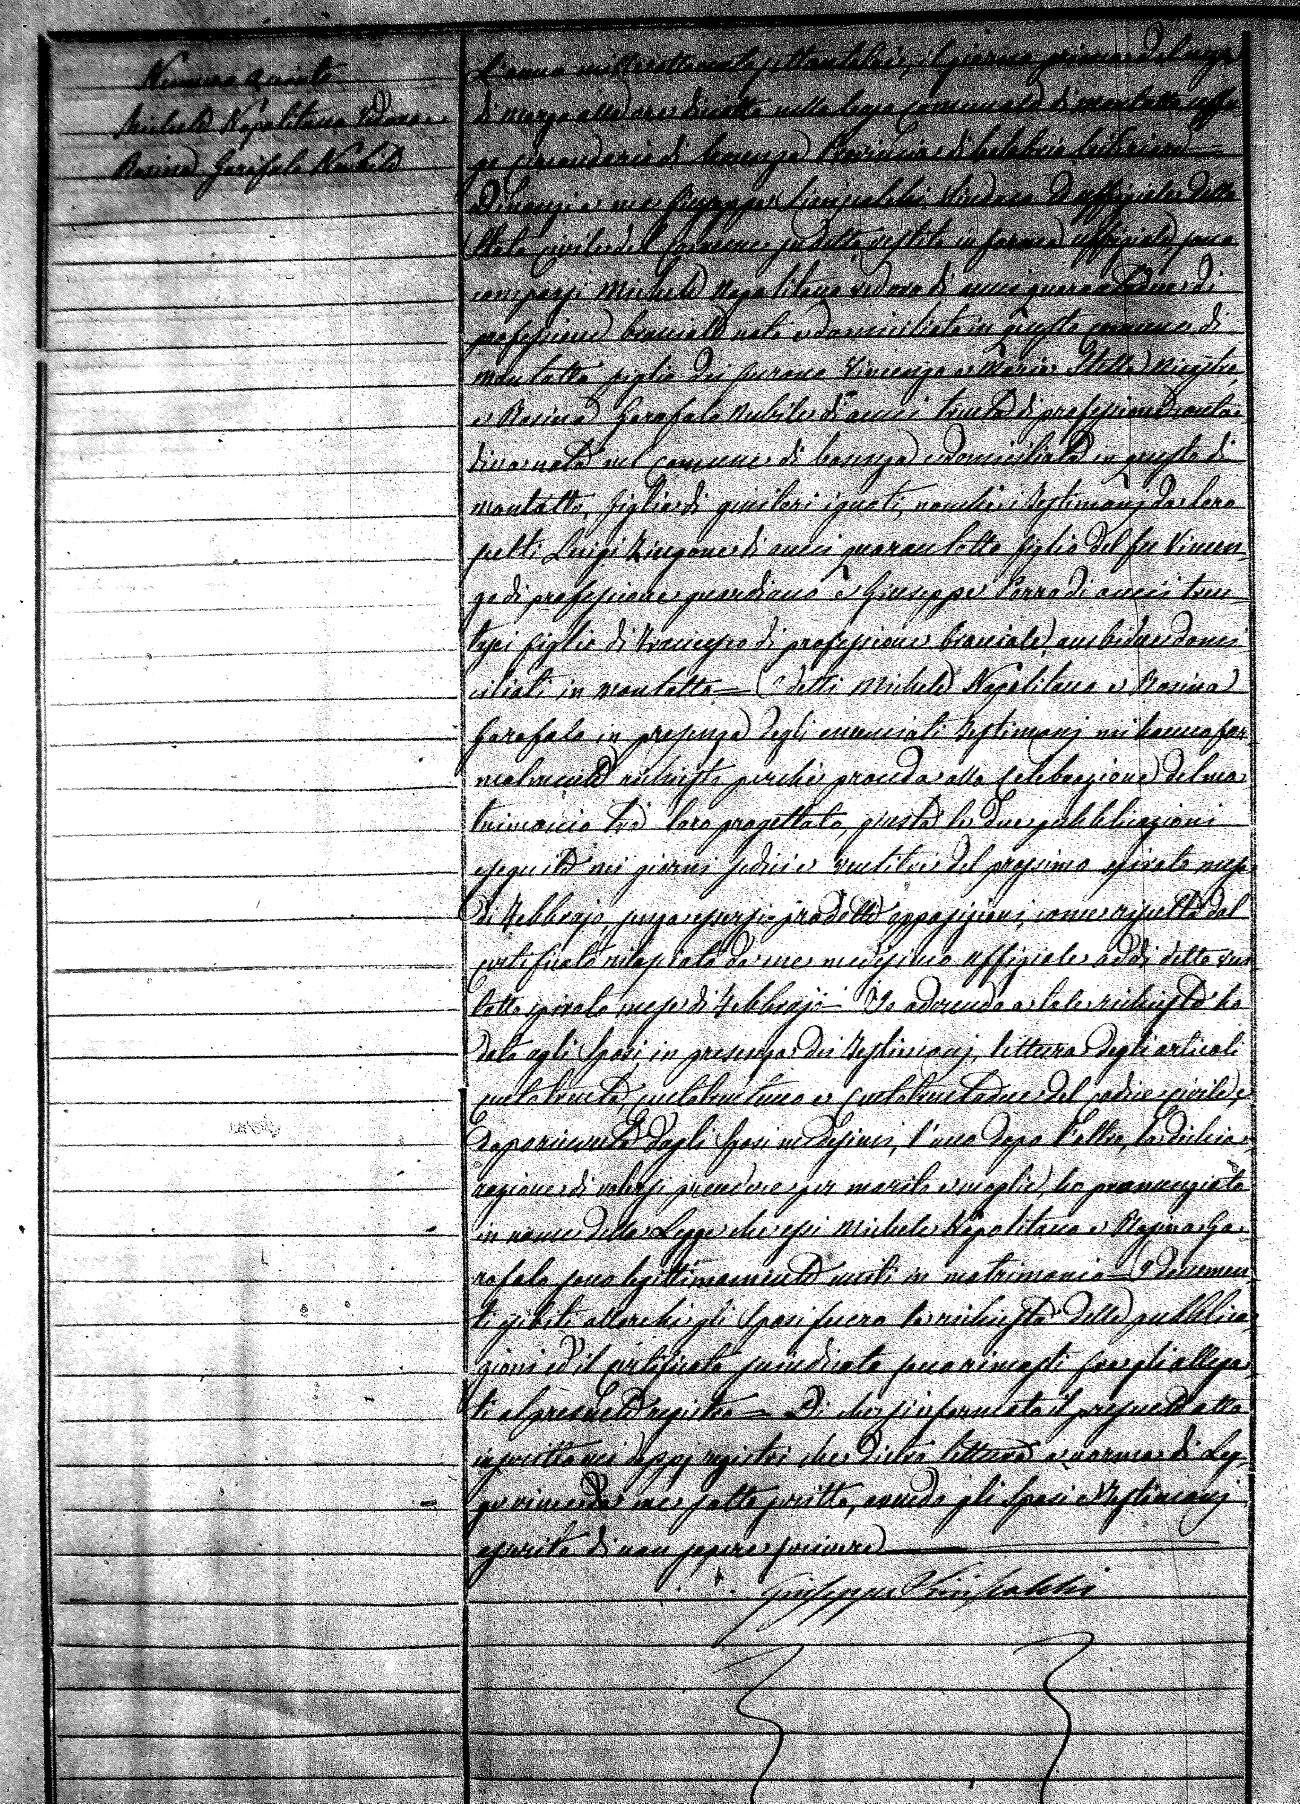 Numero quinto
Michele Napolitano Vedovo e
Rosina Garofalo Nubile
L'anno milleottocento il giorno primo del mese
di marzo alle ore diciotto nella Casa Comunale di Montalto Uffu
go circondario di Cosenza Provincia di Calabria Citeriore
Dinanzi a me Giuseppe Sindaco Ed uffiziale dello
Stato civile del Comune sudetto vestito in forma uffiziale sono
comparsi Michele Napolitano vedovo di anni quarantadue di
professione bracciale nato e domiciliato in questo comune di
Montalto figlio dei furono Vincenzo e Maria Stella
e Rosina Garofalo nubile di anni trenta di professione conta
dina nata nel comune di Cosenza e domiciliata in questo di
Montalto, figlia di genitori ignoti, nonché i Testimonj da loro
scelti Luigi Zingone di anni quarantotto figlio del fu Vincen
zo di professione guardiano e Giuseppe Porro di anni tren
tasei figlio di Francesco di professione bracciale, ambidue domi
ciliati in Montalto — I detti Michele Napolitano e Rosina
Garofalo in presenza degli enunciati Testimonj mi hanno for
malmente richiesto perché proceda alla celebrazione del ma
trimonio tra loro progettato, giusta le due pubblicazioni
eseguite nei giorni sedici e ventitre del prossimo spirato mese
di Febbrajo, senza essersi prodotte opposizioni, come risulta dal
certificato rilasciato da me medesimo uffiziale addì detto ven
totto spirato mese di Febbrajo — Io aderendo a tale richiesta ho
dato agli Sposi in presenza dei Testimonj, lettura degli articoli
centotrenta centotrentuno e centotrentadue del codice civile, e
dagli Sposi medesimi, l'uno dopo l'altro, la dichia
razione di volersi prendere per marito e moglie, ho pronunziato
in nome della Legge che essi Michele Napolitano e Rosina Ga
rofalo sono legittimamente uniti in matrimonio — I documen
ti esibiti allorché gli Sposi fecero la richiesta delle pubblica
zioni ed il certificato succitato sono rimasti fra gli allega
ti al presente registro — Di che si è formato il presente atto
inscritto nei doppj registri che dietro lettura a norma di Leg
ge viene da me sottoscritto, avendo gli Sposi e Testimonj
asserito di non sapere scrivere
Giuseppe